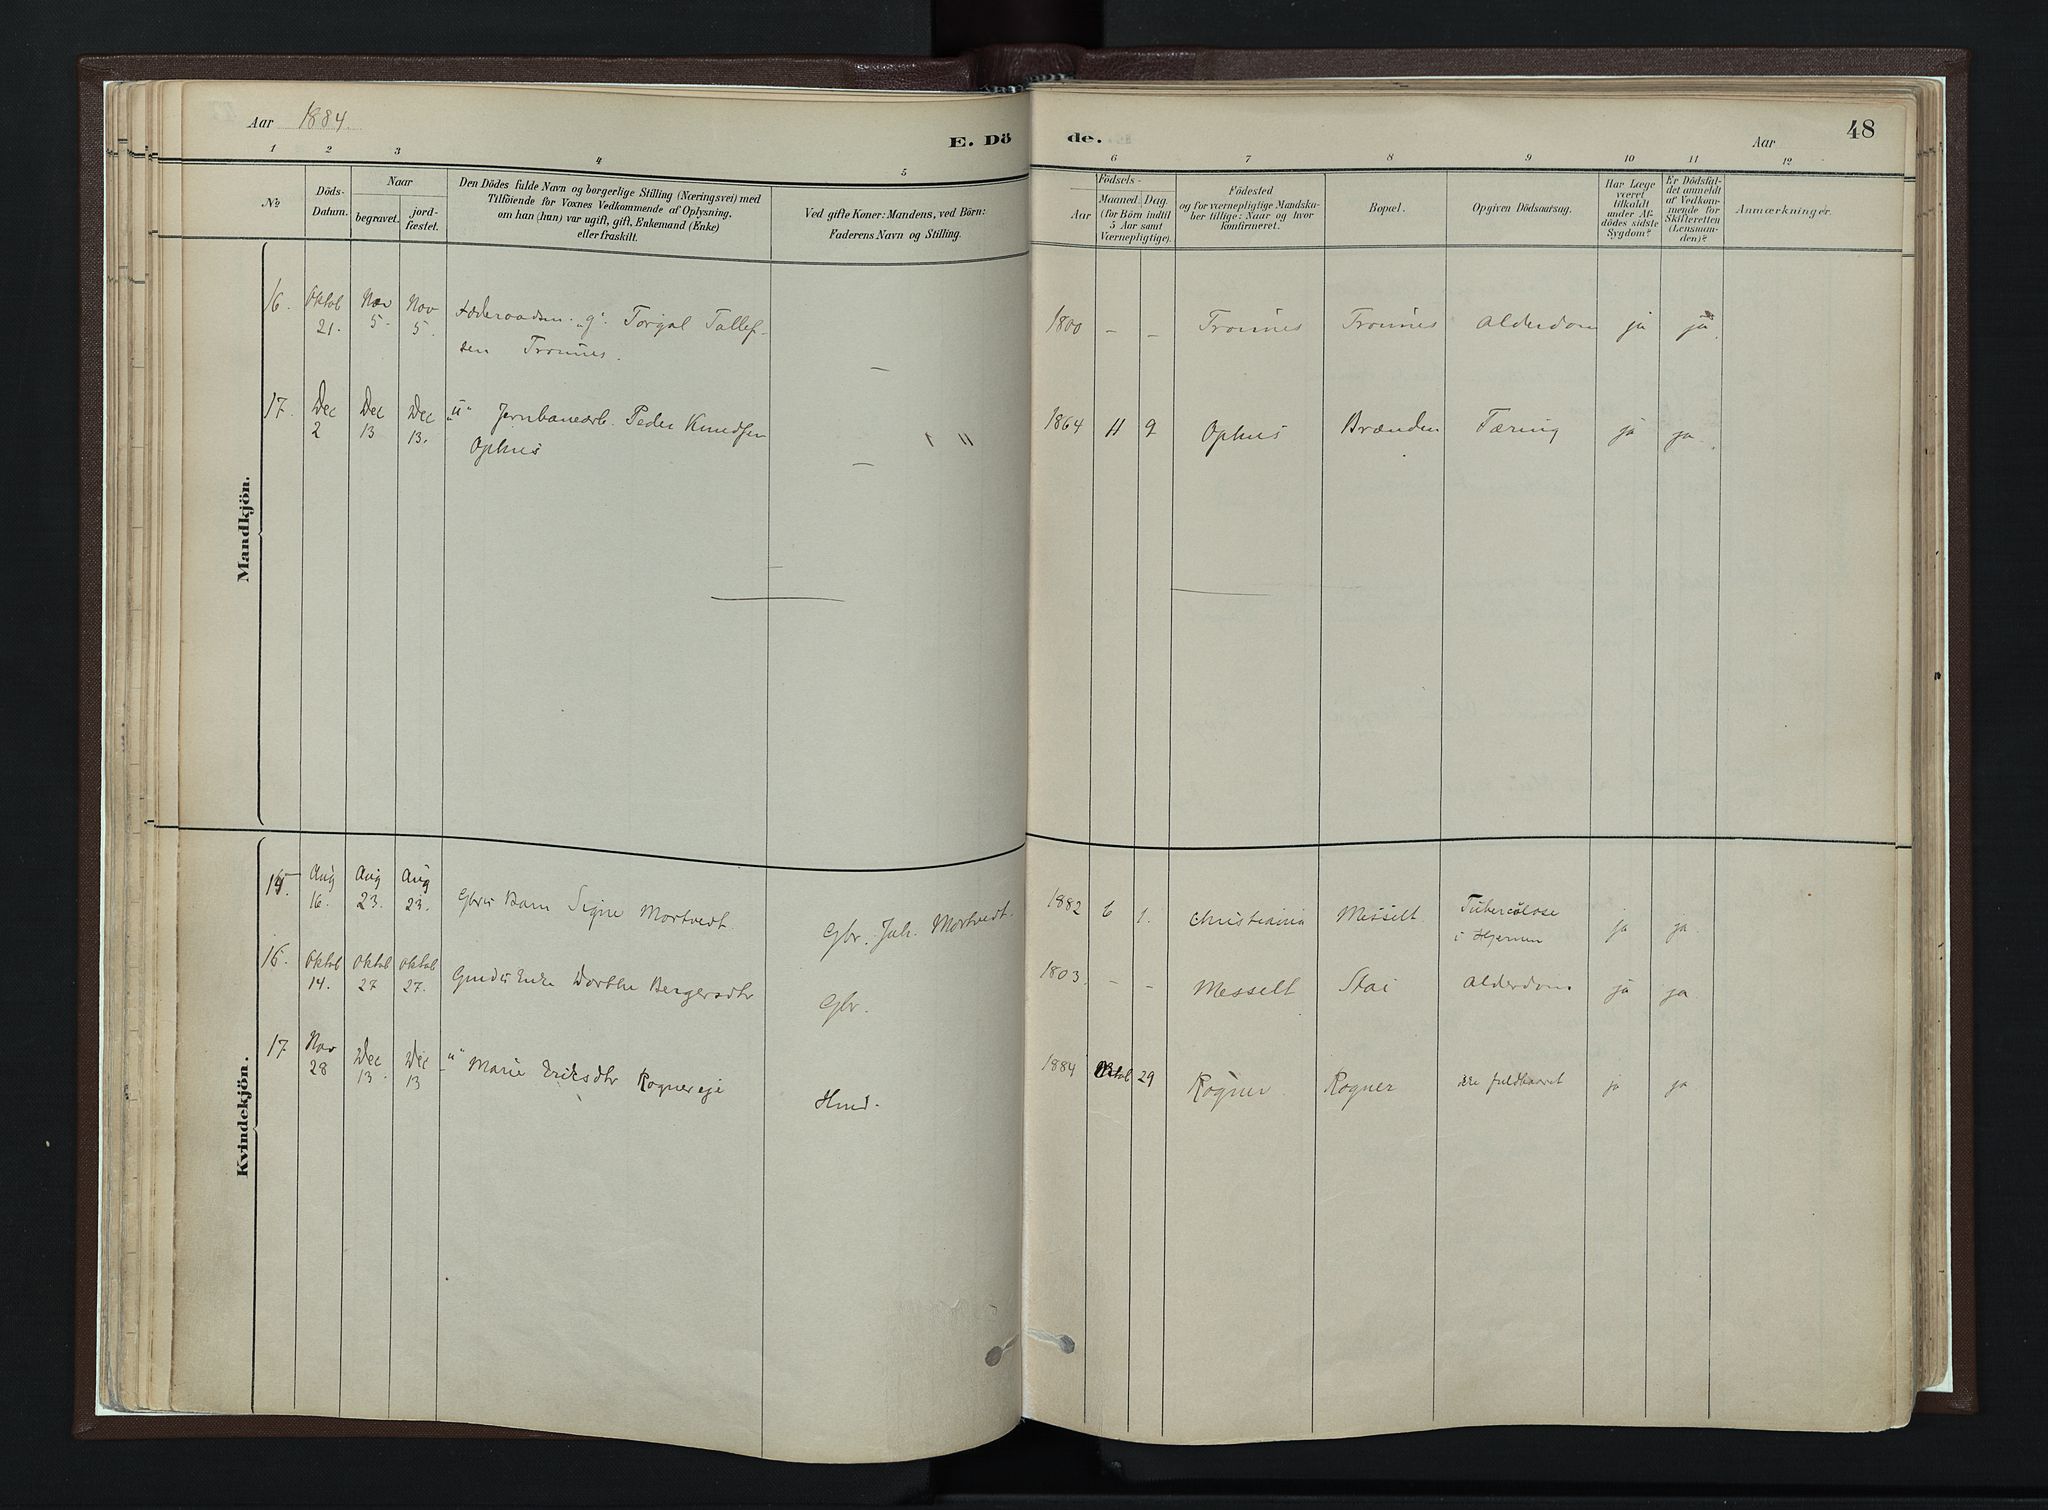 Aar 1884.
E. Dö
de.
Aar
48
1 2 3 4 5 6 7 8 9 10 11 12
No
Döds-
Datum.
Naar
begravet.
jord-
fæstet.
Den Dödes fulde Navn og borgerlige Stilling (Næringsvei) med
Tilföiende for Voxnes Vedkommende af Oplysning,
om han (hun) var ugift, gift, Enkemand (Enke)
eller fraskilt.
Ved gifte Koner: Mandens, ved Börn:
Faderens Navn og Stilling.
Födsels-
Aar
Maaned Dag
(for Börn indtil
5 Aar samt
Værnepligtige).
Födested
og for værnepligtige Mandska-
ber tillige: Naar og hvor
konfirmeret.
Bopæl.
Opgiven Dödsaarsag.
Har Læge
været
tilkaldt
under Af-
dödes sidste
Sygdom?
Er Dödsfal-
det anmeldt
af Vedkom-
mende for
Skifteretten
(Lensman-
den)?
Anmærkninger.
Mandkjön.
16. Oktob Nov Nov
21. 5. 5. "g". Torgal Tallef-
sen Tronnes. –
1800 – – Tronnes Tronnes Alderdom ja ja.
17. Dec Dec Dec "u" Jernbanearb. Peder Knudsen
2 13 13. Ophus –
1864 11 9 Ophus Brænden Tæring ja ja.
Kvindekjön.
15. Aug Aug Aug
16. 23. 23. Gbrs Barn Signe Mortvedt. Gbr. Joh. Mortvedt.
1882 6 1. Christiania Messelt. Tubercolose
i Hjernen ja ja.
16. Oktob Oktob Oktob
14. 27 27. Enke Dorthe Bergersdtr Gbr.
1803. – – Messelt Stai Alderdom ja ja.
17 Nov Dec Dec
28 13. 13 "u" Marie Eriksdtr Rognereje Hmd.
1884 Oktob 29 Rogner. Rogner ikke fuldbaaret ja ja